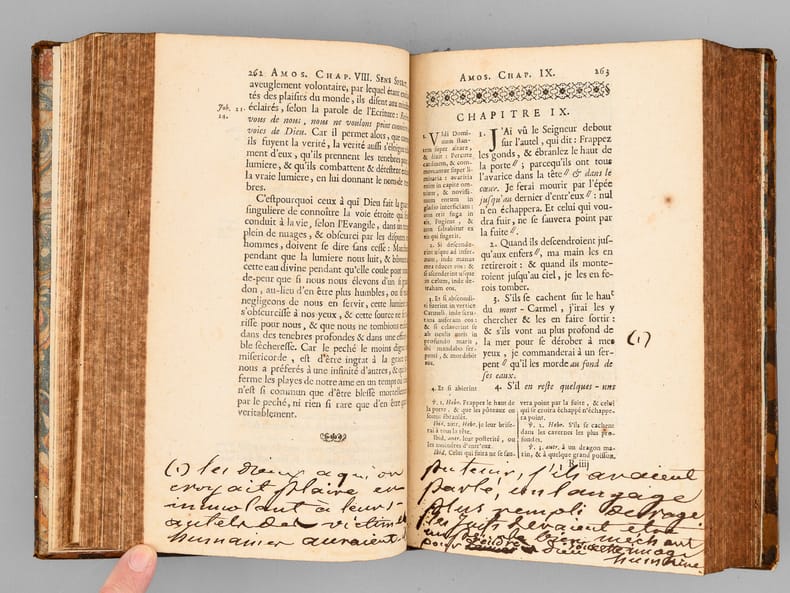 262 AMOS. CHAP. VIII. SENS
aveuglement volontaire, par lequel étant
tés des plaisirs du monde, ils disent aux
éclairés, selon la parole de l'Ecriture:
Job. 21.
14.
vous de nous, nous ne voulons point
voies de Dieu. Car il permet alors, que
ils fuyent la verité, la verité aussi s'éloigne
ment d'eux, qu'ils prennent les tenebres pour
lumiere, & qu'ils combattent & détestent
la vraie lumiere, en lui donnant le nom de
bres.
C'estpourquoi ceux à qui Dieu fait la
singuliere de connoître la voie étroite qui
conduit à la vie, selon l'Evangile, dans un
plein de nuages, & obscurci par les disputes
hommes, doivent se dire sans cesse:
pendant que la lumiere nous luit, &
cette eau divine pendant qu'elle coule pour
de-peur que si nous nous élevons d'un si
don, au-lieu d'en être plus humbles, ou si
negligeons de nous en servir, cette lumiere
s'obscurcisse à nos yeux, & que cette source
risse pour nous, & que nous ne tombions
dans des tenebres profondes & dans une
ble sécheresse. Car le peché le moins digne
misericorde, est d'être ingrat à la grace
nous a préferés à une infinité d'autres, &
ferme les playes de notre ame en un temps où
n'est si commun que d'être blessé mortellement
par le peché, ni rien si rare que d'en être
veritablement.
(1) les dieux a qui on
croyait plaire en
immolant à leurs
autels des victimes
humaines auraient
AMOS. CHAP. IX. 263
CHAPITRE IX.
1. VIdi Domi-
num stan-
tem super altare,
& dixit: Percute
cardinem, & com-
moveantur super li-
minaria: avaritia
enim in capite om-
nium, & novissi-
mum eorum in
gladio interficiam:
non erit fuga in
eis. Fugient, &
non salvabitur ex
eis qui fugerit.
2. Si descende-
rint usque ad infer-
num, inde manus
mea educet eos: &
si ascenderint usque
in cœlum, inde de-
traham eos.
3. Et si absconditi
fuerint in vertice
Carmeli, inde scru-
tans auferam eos:
& si celaverint se
ab oculis meis in
profundo maris,
ibi mandabo ser-
penti, & mordebit
eos.
4. Et si abierint
1. J'Ai vû le Seigneur debout
sur l'autel, qui dit: Frappez
les gonds, & ébranlez le haut de
la porte; parcequ'ils ont tous
l'avarice dans la tête & dans le
cœur. Je ferai mourir par l'épée
jusqu'au dernier d'entr'eux: nul
n'en échappera. Et celui qui vou-
dra fuir, ne se sauvera point par
la fuite.
2. Quand ils descendroient jus-
qu'aux enfers, ma main les en
retireroit: & quand ils monte-
roient jusqu'au ciel, je les en fe-
rois tomber.
3. S'ils se cachent sur le haut
du mont - Carmel, j'irai les y
chercher & les en faire sortir:
& s'ils vont au plus profond de
la mer pour se dérober à mes
yeux, je commanderai à un ser-
pent qu'il les morde au fond de
ses eaux.
(1)
4. S'il en reste quelques - uns
℣. 1. Hebr. Frappez le haut de
la porte, & que les pôteaux en
soient ébranlés.
Ibid. autr. je leur brise-
rai à tous la tête.
Ibid. autr. leur posterité, ou
les moindres d'entr'eux.
Ibid. Celui qui fuira ne se sau-
vera point par la fuite, & celui
qui se croira échappé n'échappe-
ra point.
℣. 2. Hebr. S'ils se cachent
dans les cavernes les plus pro-
fondes.
℣. 3. autr. à un dragon ma-
rin, & à quelque grand poisson.
R iiij
pu tenir, s'ils avaient
parlé, un langage
plus rempli de rage.
les juifs
méchant
pour
humaine